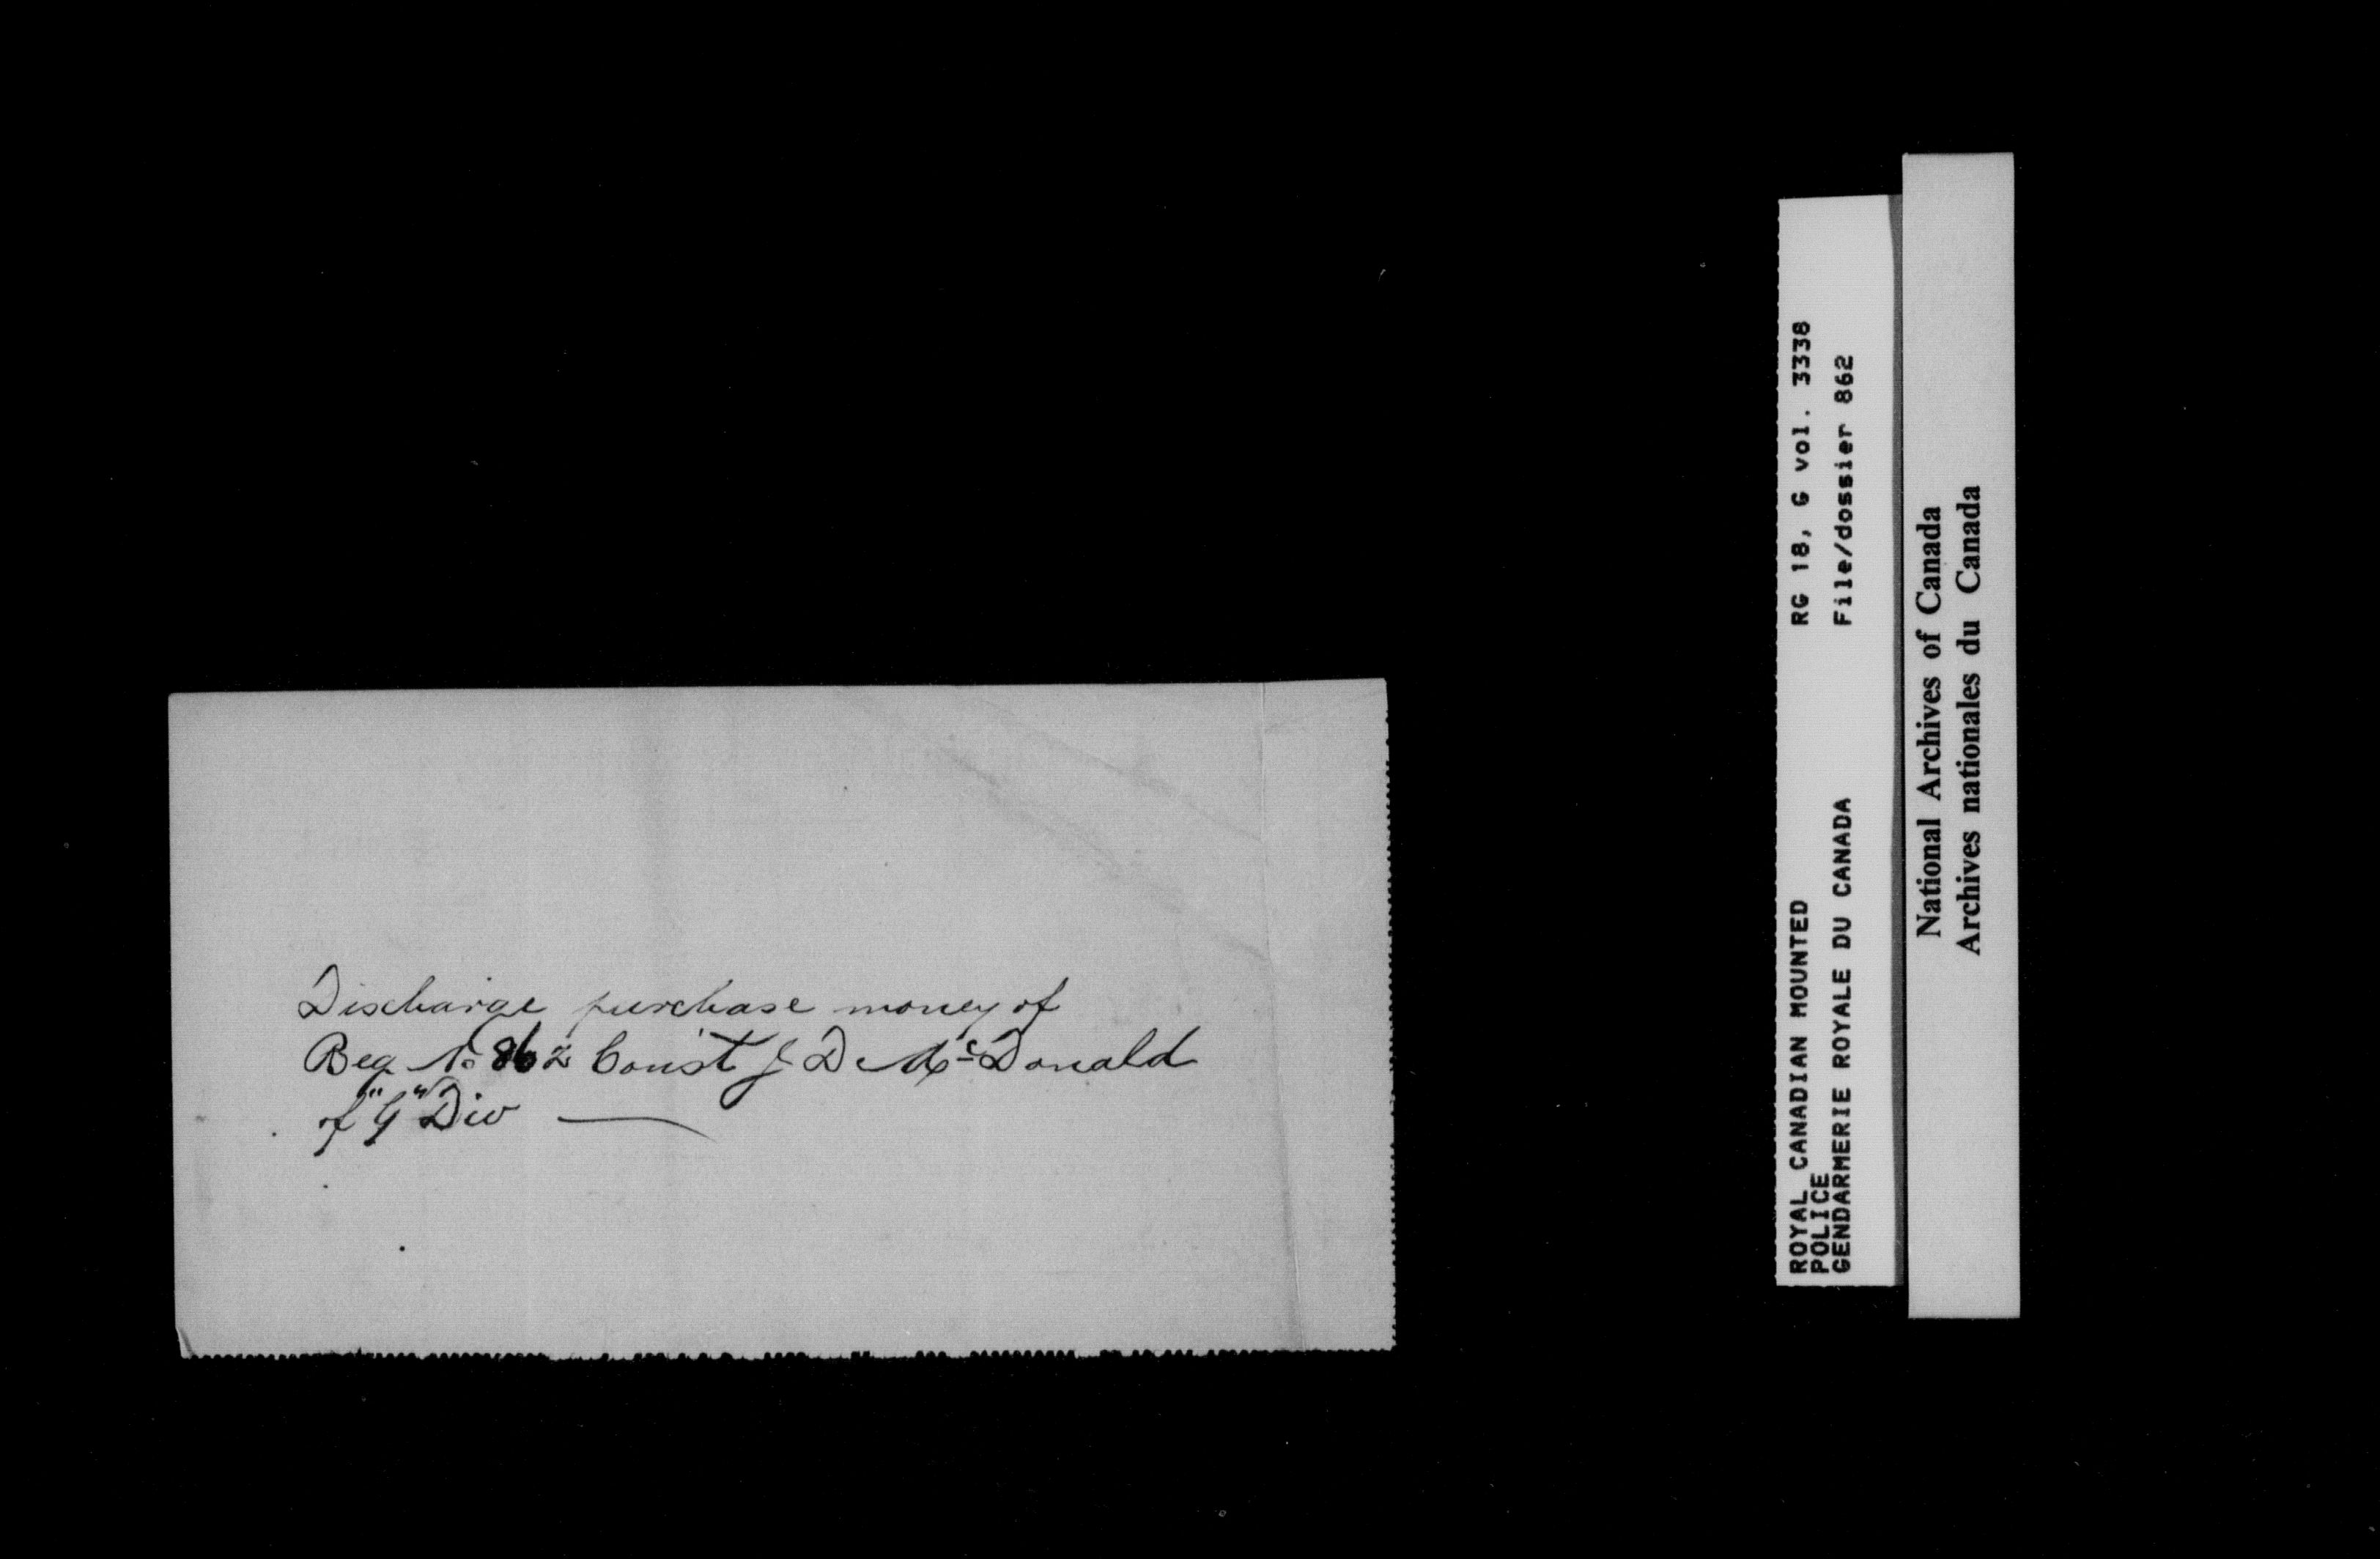 Discharge purchase money of
Reg No 862 Const J D McDonald
of "G" Div
ROYAL CANADIAN MOUNTED
POLICE
GENDARMERIE ROYALE DU CANADA
RG 18, G vol. 3338
File/dossier 862
National Archives of Canada
Archives nationales du Canada